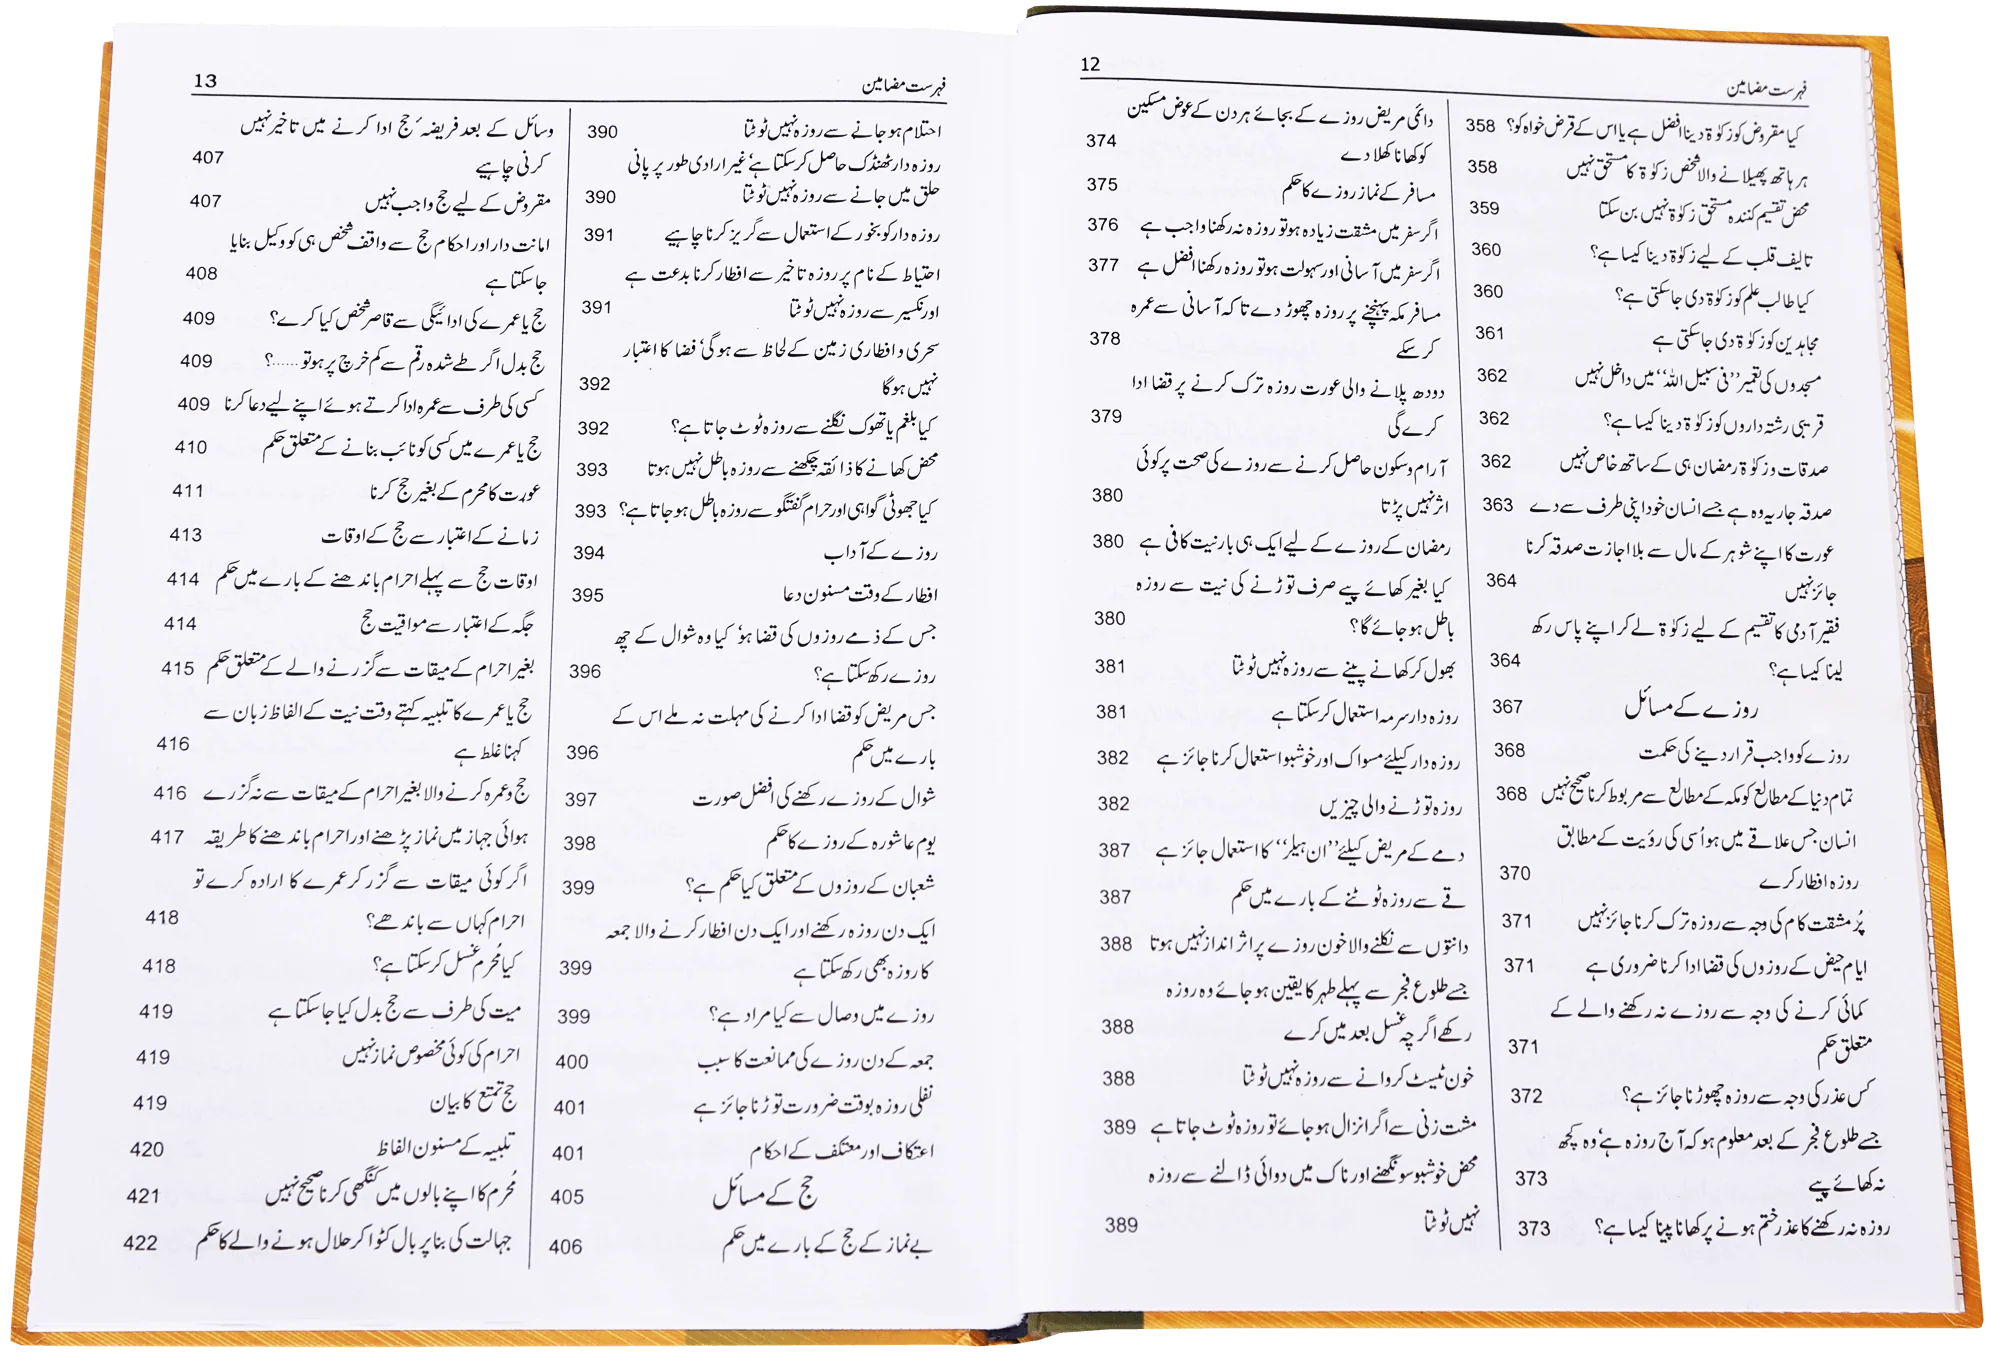 12
فہرست مضامین
کیا مقروض کو زکوٰۃ دینا افضل ہے یا اس کے قرض خواہ کو؟ 358
ہر ہاتھ پھیلانے والا شخص زکوٰۃ کا مستحق نہیں 358
محض تقسیم کنندہ مستحق زکوٰۃ نہیں بن سکتا 359
تالیف قلب کے لیے زکوٰۃ دینا کیسا ہے؟ 360
کیا طالب علم کو زکوٰۃ دی جاسکتی ہے؟ 360
مجاہدین کو زکوٰۃ دی جاسکتی ہے 361
مسجدوں کی تعمیر ’’فی سبیل اللہ‘‘ میں داخل نہیں 362
قریبی رشتہ داروں کو زکوٰۃ دینا کیسا ہے؟ 362
صدقات و زکوٰۃ رمضان ہی کے ساتھ خاص نہیں 362
صدقہ جاریہ وہ ہے جسے انسان خود اپنی طرف سے دے 363
عورت کا اپنے شوہر کے مال سے بلا اجازت صدقہ کرنا
جائز نہیں 364
فقیر آدمی کا تقسیم کے لیے زکوٰۃ لے کر اپنے پاس رکھ
لینا کیسا ہے؟ 364
روزے کے مسائل 367
روزے کو واجب قرار دینے کی حکمت 368
تمام دنیا کے مطالع کو مکہ کے مطالع سے مربوط کرنا صحیح نہیں 368
انسان جس علاقے میں ہو اُسی کی رؤیت کے مطابق
روزہ افطار کرے 370
پُر مشقت کام کی وجہ سے روزہ ترک کرنا جائز نہیں 371
ایام حیض کے روزوں کی قضا ادا کرنا ضروری ہے 371
کمائی کرنے کی وجہ سے روزے نہ رکھنے والے کے
متعلق حکم 371
کس عذر کی وجہ سے روزہ چھوڑنا جائز ہے؟ 372
جسے طلوع فجر کے بعد معلوم ہو کہ آج روزہ ہے‘ وہ کچھ
نہ کھائے پیے 373
روزہ نہ رکھنے کا عذر ختم ہونے پر کھانا پینا کیسا ہے؟ 373
دائمی مریض روزے کے بجائے ہر دن کے عوض مسکین
کو کھانا کھلا دے 374
مسافر کے نماز روزے کا حکم 375
اگر سفر میں مشقت زیادہ ہو تو روزہ نہ رکھنا واجب ہے 376
اگر سفر میں آسانی اور سہولت ہو تو روزہ رکھنا افضل ہے 377
مسافر مکہ پہنچنے پر روزہ چھوڑ دے تاکہ آسانی سے عمرہ
کر سکے 378
دودھ پلانے والی عورت روزہ ترک کرنے پر قضا ادا
کرے گی 379
آرام و سکون حاصل کرنے سے روزے کی صحت پر کوئی
اثر نہیں پڑتا 380
رمضان کے روزے کے لیے ایک ہی بار نیت کافی ہے 380
کیا بغیر کھائے پیے صرف توڑنے کی نیت سے روزہ
باطل ہو جائے گا؟ 380
بھول کر کھانے پینے سے روزہ نہیں ٹوٹتا 381
روزہ دار سرمہ استعمال کر سکتا ہے 381
روزہ دار کیلئے مسواک اور خوشبو استعمال کرنا جائز ہے 382
روزہ توڑنے والی چیزیں 382
دمے کے مریض کیلئے ’’ان ہیلر‘‘ کا استعمال جائز ہے 387
قے سے روزہ ٹوٹنے کے بارے میں حکم 387
دانتوں سے نکلنے والا خون روزے پر اثر انداز نہیں ہوتا 388
جسے طلوع فجر سے پہلے طہر کا یقین ہو جائے وہ روزہ
رکھے اگرچہ غسل بعد میں کرے 388
خون ٹیسٹ کروانے سے روزہ نہیں ٹوٹتا 388
مشت زنی سے اگر انزال ہو جائے تو روزہ ٹوٹ جاتا ہے 389
محض خوشبو سونگھنے اور ناک میں دوائی ڈالنے سے روزہ
نہیں ٹوٹتا 389
13
فہرست مضامین
احتلام ہو جانے سے روزہ نہیں ٹوٹتا 390
روزہ دار ٹھنڈک حاصل کر سکتا ہے‘ غیر ارادی طور پر پانی
حلق میں جانے سے روزہ نہیں ٹوٹتا 390
روزہ دار کو بخور کے استعمال سے گریز کرنا چاہیے 391
احتیاط کے نام پر روزہ تاخیر سے افطار کرنا بدعت ہے
اور نکسیر سے روزہ نہیں ٹوٹتا 391
سحری و افطاری زمین کے لحاظ سے ہوگی‘ فضا کا اعتبار
نہیں ہوگا 392
کیا بلغم یا تھوک نگلنے سے روزہ ٹوٹ جاتا ہے؟ 392
محض کھانے کا ذائقہ چکھنے سے روزہ باطل نہیں ہوتا 393
کیا جھوٹی گواہی اور حرام گفتگو سے روزہ باطل ہو جاتا ہے؟ 393
روزے کے آداب 394
افطار کے وقت مسنون دعا 395
جس کے ذمے روزوں کی قضا ہو‘ کیا وہ شوال کے چھ
روزے رکھ سکتا ہے؟ 396
جس مریض کو قضا ادا کرنے کی مہلت نہ ملے اس کے
بارے میں حکم 396
شوال کے روزے رکھنے کی افضل صورت 397
یوم عاشورہ کے روزے کا حکم 398
شعبان کے روزوں کے متعلق کیا حکم ہے؟ 399
ایک دن روزہ رکھنے اور ایک دن افطار کرنے والا جمعہ
کا روزہ بھی رکھ سکتا ہے 399
روزے میں وصال سے کیا مراد ہے؟ 399
جمعہ کے دن روزے کی ممانعت کا سبب 400
نفلی روزہ بوقت ضرورت توڑنا جائز ہے 401
اعتکاف اور معتکف کے احکام 401
حج کے مسائل 405
بے نماز کے حج کے بارے میں حکم 406
وسائل کے بعد فریضہ حج ادا کرنے میں تاخیر نہیں
کرنی چاہیے 407
مقروض کے لیے حج واجب نہیں 407
امانت دار اور احکام حج سے واقف شخص ہی کو وکیل بنایا
جا سکتا ہے 408
حج یا عمرے کی ادائیگی سے قاصر شخص کیا کرے؟ 409
حج بدل اگر طے شدہ رقم سے کم خرچ پر ہو تو......؟ 409
کسی کی طرف سے عمرہ ادا کرتے ہوئے اپنے لیے دعا کرنا 409
حج یا عمرے میں کسی کو نائب بنانے کے متعلق حکم 410
عورت کا محرم کے بغیر حج کرنا 411
زمانے کے اعتبار سے حج کے اوقات 413
اوقات حج سے پہلے احرام باندھنے کے بارے میں حکم 414
جگہ کے اعتبار سے مواقیت حج 414
بغیر احرام کے میقات سے گزرنے والے کے متعلق حکم 415
حج یا عمرے کا تلبیہ کہتے وقت نیت کے الفاظ زبان سے
کہنا غلط ہے 416
حج و عمرہ کرنے والا بغیر احرام کے میقات سے نہ گزرے 416
ہوائی جہاز میں نماز پڑھنے اور احرام باندھنے کا طریقہ 417
اگر کوئی میقات سے گزر کر عمرے کا ارادہ کرے تو
احرام کہاں سے باندھے؟ 418
کیا مُحرم غسل کر سکتا ہے؟ 418
میت کی طرف سے حج بدل کیا جا سکتا ہے 419
احرام کی کوئی مخصوص نماز نہیں 419
حج تمتع کا بیان 419
تلبیہ کے مسنون الفاظ 420
مُحرم کا اپنے بالوں میں کنگھی کرنا صحیح نہیں 421
جہالت کی بنا پر بال کٹوا کر حلال ہونے والے کا حکم 422